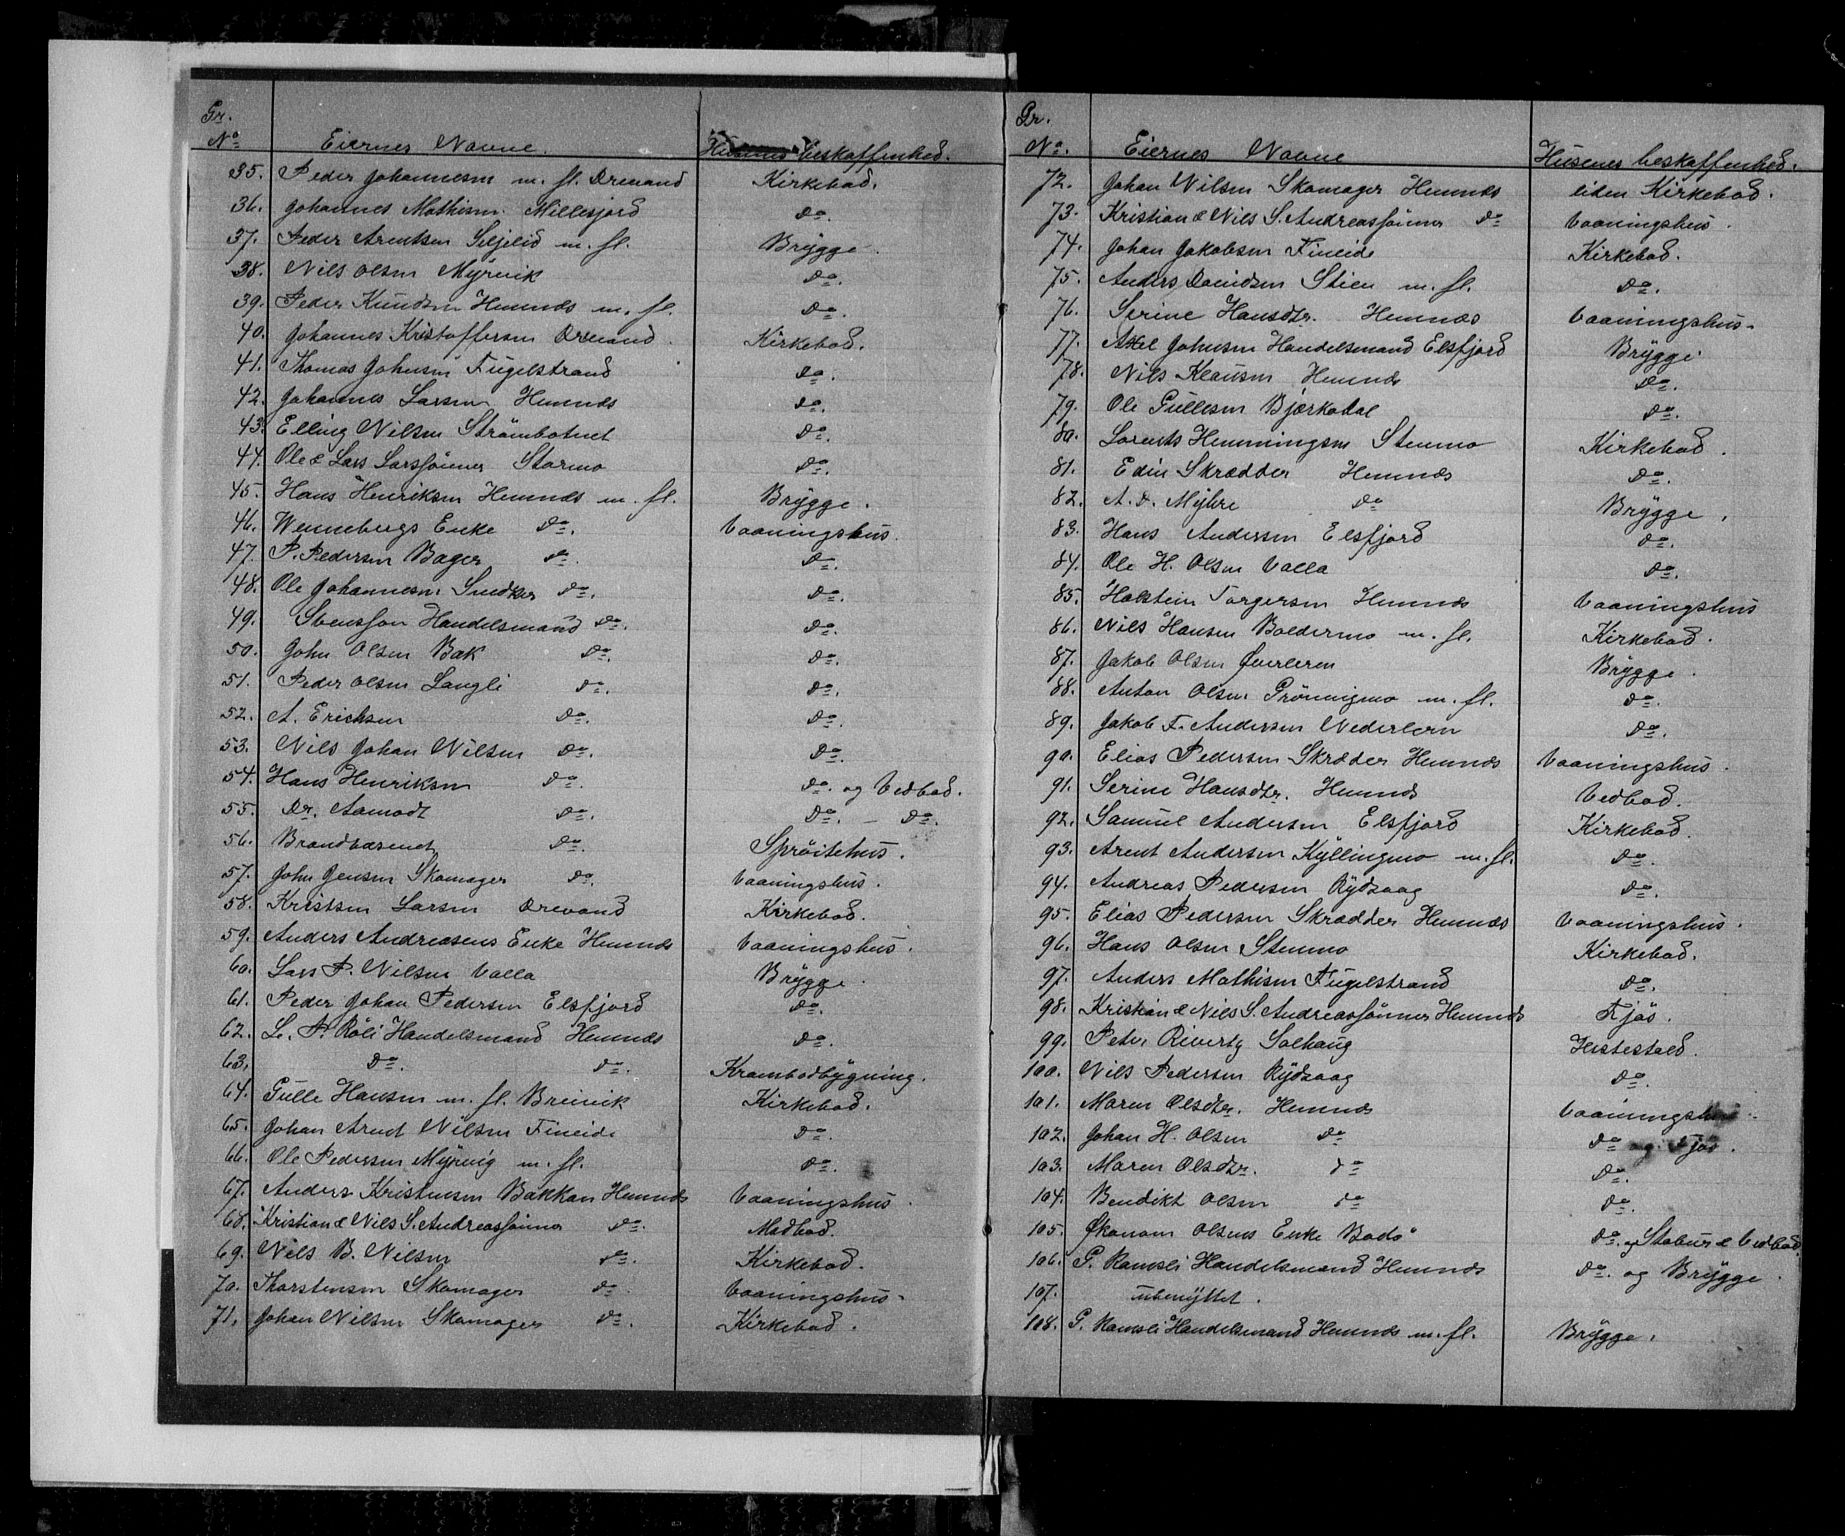 Gr.
No Eiernes Navne. Husenes beskaffenhed.
35. Peder Johannesen m. fl. Drevand Kirkebod.
36. Johannes Mathisen Millesjord do.
37. Peder Arentsen Seljelid m. fl. Brygge.
38. Nils Olsen Myrvik do.
39. Peder Knudsen Hemnæs m. fl. do.
40. Johannes Kristoffersen Drevand. Kirkebod.
41. Thomas Johnsen Fuglstrand do.
42. Johannes Larsen Hemnæs do.
43. Elling Nilsen Strømbotnet do.
44. Ole & Lars Larssönner Stormo do.
45. Hans Henriksen Hemnæs m. fl. Brygge.
46. Wennebergs Enke do. Vaaningshus.
47. P. Pedersen Bager do. do.
48. Ole Johannesen Snedker do. do.
49. Svensson Handelsmand do. do.
50. John Olsen Bak do. do.
51. Peder Olsen Langli do. do.
52. A. Ericksen do. do.
53. Nils Johan Nilsen do. do.
54. Hans Henriksen do. do. og Vedbod.
55. Dr. Aamodt do. do. – do.
56. Brandvæsenet do. Sprøitehus.
57. John Jensen Skomager do. Vaaningshus.
58. Kristen Larsen Drevand Kirkebod.
59. Anders Andreasens Enke Hemnæs Vaaningshus.
60. Lars P. Nilsen Valla Brygge.
61. Peder Johan Pedersen Elsfjord do.
62. L. A. Röli Handelsmand Hemnæs do.
63. do. do. Krambodbygning.
64. Gulle Hansen m. fl. Breivik Kirkebod.
65. Johan Arnt Nilsen Fineide do.
66. Ole Pedersen Myrvig m. fl. do.
67. Anders Kristensen Bakkan Hemnæs Vaaningshus.
68. Kristian & Nils S. Andreassönner do. Madbod.
69. Nils B. Nilsen do. Kirkebod.
70. Thorstensen Skomager do Vaaningshus.
71. Johan Nilsen Skomager do. Kirkebod.
Gr.
No. Eiernes Navne Husenes beskaffenhed.
72. Johan Nilsen Skomager Hemnæs liden Kirkebod.
73. Kristian & Nils S. Andreassönner do Vaaningshus.
74. Johan Jakobsen Fineide Kirkebod.
75. Anders Davidsen Stien m. fl. do.
76. Serine Hansdtr. Hemnæs Vaaningshus.
77. Axel Johnsen Handelsmand Elsfjord Brygge
78. Nils Klausen Hemnæs do.
79. Ole Gullesen Bjerkadal do.
80. Lorents Hemmingsen Stenmo Kirkebod.
81. Edin Skrædder Hemnæs do.
82. A. D. Myhre do Brygge.
83. Hans Andersen Elsfjord do.
84. Ole H. Olsen Valla do.
85. Halstein Torgersen Hemnæs Vaaningshus
86. Nils Hansen Boldermo m. fl. Kirkebod.
87. Jakob Olsen Øverleren Brygge.
88. Anton Olsen Grönnigmo m. fl. do.
89. Jakob F. Andersen Nederlern do.
90. Elias Pedersen Skræder Hemnæs Vaaningshus.
91. Serine Hansdtr. Hemnæs Vedbod.
92. Samuel Andersen Elsfjord Kirkebod.
93. Arent Andersen Kyllingmo m. fl. do.
94. Andreas Pedersen Rydsaag do.
95. Elias Pedersen Skrædder Hemnæs Vaaningshus.
96. Hans Olsen Stenmo Kirkebod.
97. Anders Mathisen Fuglstrand do.
98. Kristian & Nils S. Andreassönner Hemnæs Fjös.
99. Petter Rivertz Solhaug Hestestald.
100. Nils Pedersen Rydsaag do.
101. Maren Olsdtr. Hemnæs Vaaningshus.
102. Johan H. Olsen do do og Fjös.
103. Maren Olsdtr. do do.
104. Bendikt Olsen do do.
105. Økonom Olsens Enke Bodö do. og Stabur & Vedbod.
106. G. Ramsli Handelsmand Hemnæs do. og Brygge.
107. ubenyttet.
108. G. Ramsli Handelsmand Hemnæs m. fl. Brygge.